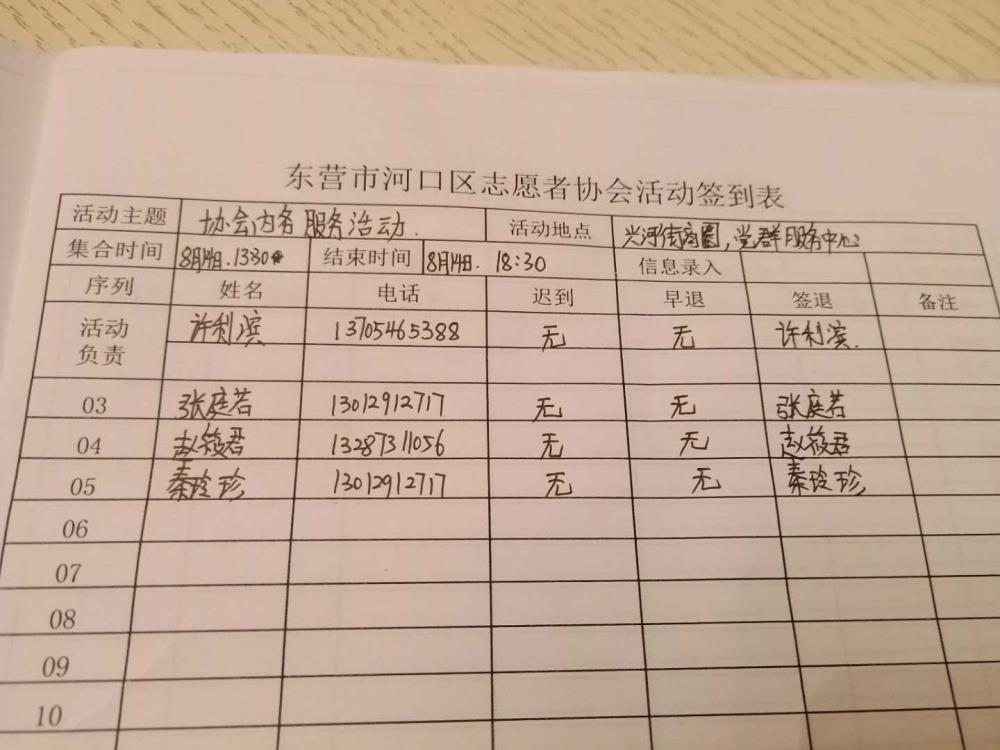 东营市河口区志愿者协会活动签到表
活动主题 协会内务服务活动. 活动地点 兴河街商圈,党群服务中心
集合时间 8月14日.13:30 结束时间 8月14日. 18:30 信息录入
序列 姓名 电话 迟到 早退 签退 备注
活动负责 许利滨 13705465388 无 无 许利滨.
03 张庭若 13012912717 无 无 张庭若
04 赵筱君 13287311056 无 无 赵筱君
05 秦玲珍 13012912717 无 无 秦玲珍
06
07
08
09
10